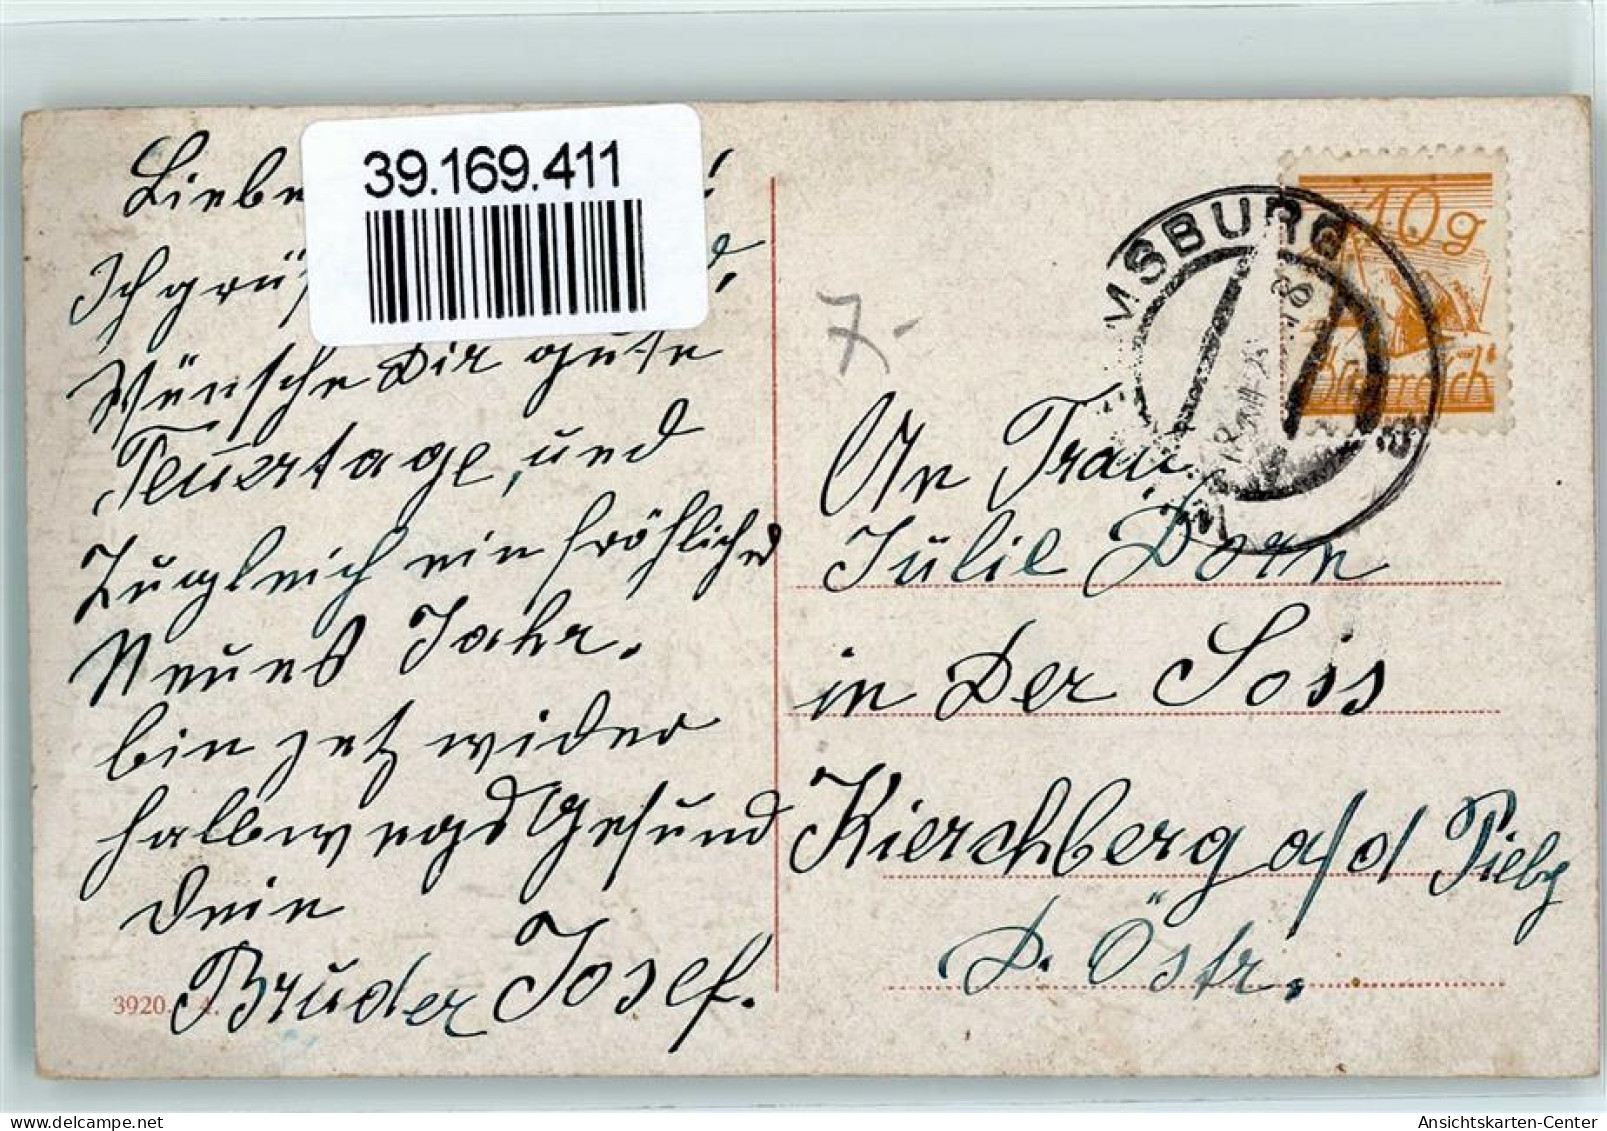 39.169.411
Liebe
Ich grüß
Wünsche Dir gute
Feuertage, und
Zugleich ein fröhliches
Neues Jahr.
bin jetz wider
halbwegs Gesund
Dein
Bruder Josef.
3920. 4.
7-
MSBURG
10g
Österreich
An Frau
Julie Dorn
in Der Soiss
Kierchberg a/d Pielg
D. Östr.
Ansichtskarten-Center